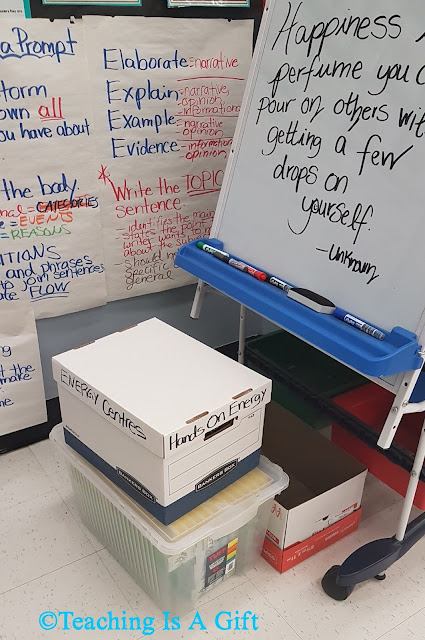 a Prompt
own all
you have about
the body
= CATEGORIES
= EVENTS
= REASONS
and phrases
to join sentences
FLOW
Elaborate = narrative
Explain = narrative,
opinion
informational
Example = narrative
opinion
Evidence = information
opinion
* Write the TOPIC
sentence -
the main
states the
about the
general
Happiness
perfume you
pour on others
getting a few
drops on
yourself.
- Unknown
ENERGY CENTRES
Hands On Energy
BANKERS BOX
BANKERS BOX
©Teaching Is A Gift